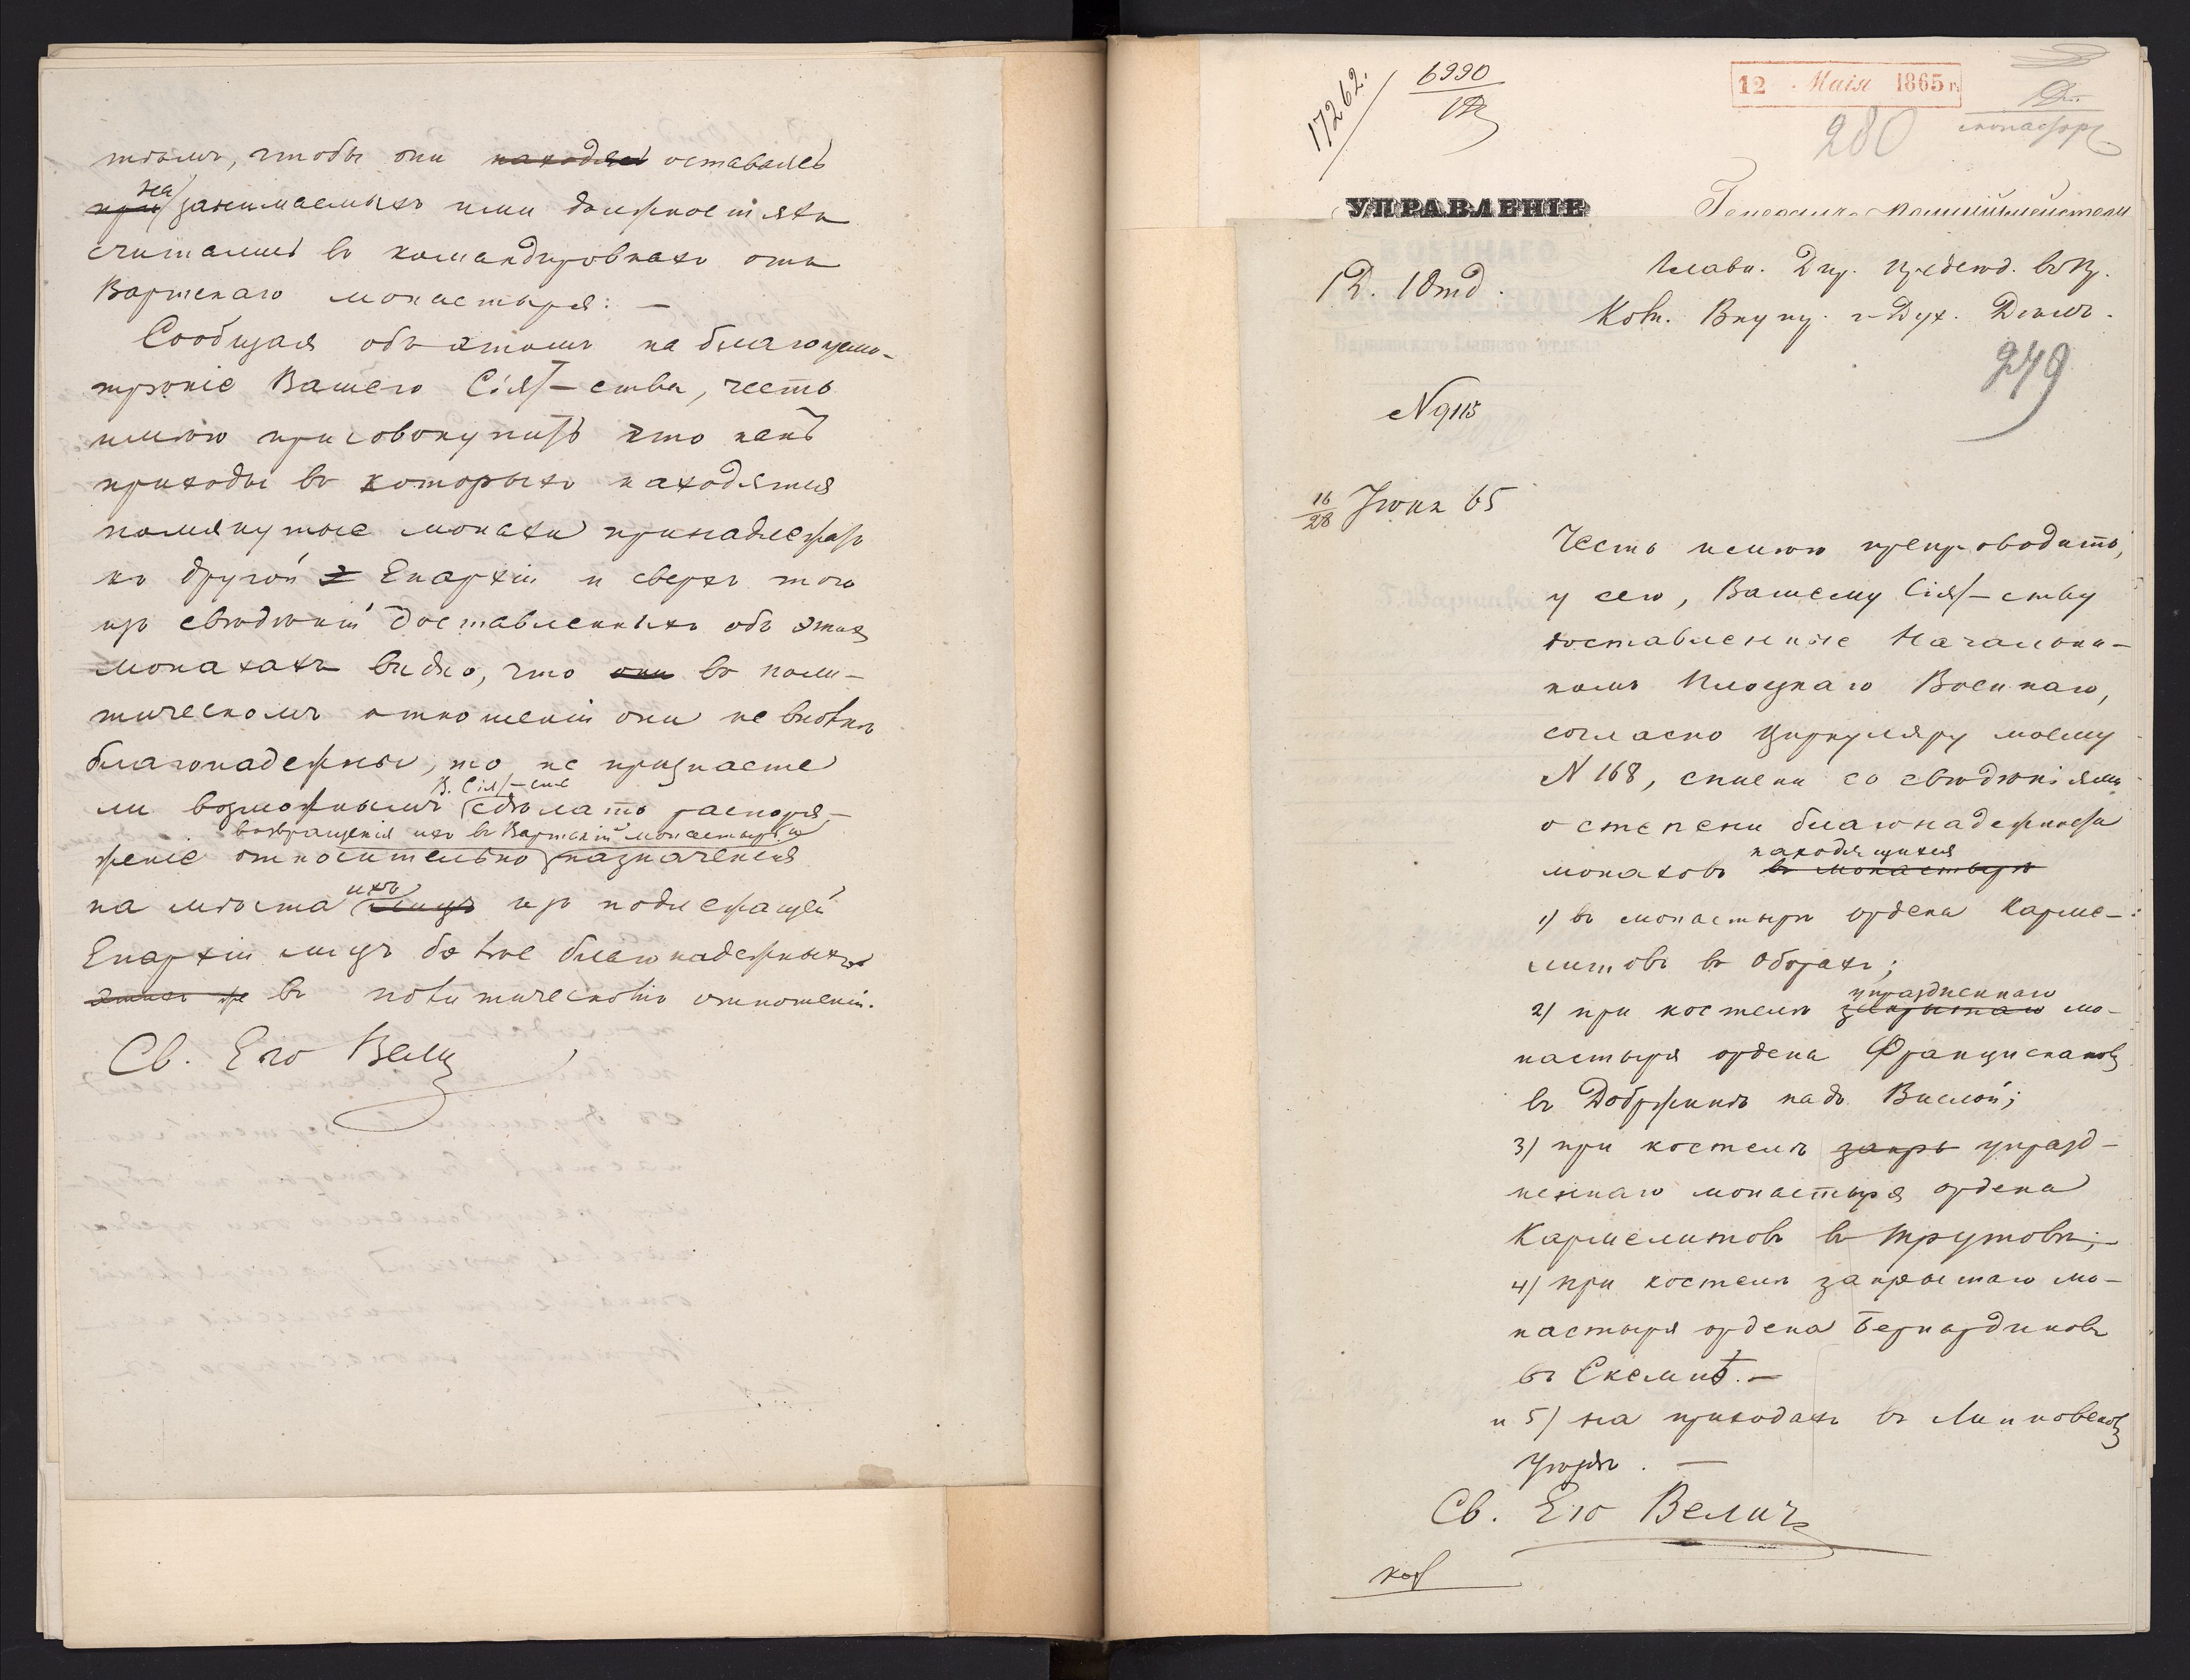 тѣмъ, чтобы они находяс оставались
на
при занимаемыхъ ими должностяхъ
считались въ командировкахъ отъ
Вартскаго монастыря: —
Сообщая объ этомъ на благоусмо-
трѣніе Вашего Сіят-ства, честь
имѣю присовокупить что какъ
приходы въ которыхъ находятся
помянутые монахи принадлежатъ
къ другой Епархіи и сверхъ того
изъ свѣдѣній доставленныхъ объ этихъ
монахахъ видно, что они въ поли-
тическомъ отношеніи они не вполнѣ
благонадежны, то не признаете
В. Сіят-ство
ли возможнымъ сдѣлать распоря-
возвращенія ихъ въ Вартскій монастырь и
женіе относительно назначенія
ихъ
на мѣста лицъ изъ подлежащей
Епархіи лицъ болѣе благонадежныхъ
этихъ же въ политическомъ отношеніи.
Св. Его Велич
17262.
6990
12 Маія 1865 г.
280
УПРАВЛЕНІЕ
Генералъ-Полиціймейстеру
1 Д. 1 Отд.
Главн. Дир. Предсѣд. въ Пр.
Ком. Внутр. и Дух. Дѣлъ.
279
N 9115
16/28 Іюня 65
Честь имѣю препроводить,
у сего, Вашему Сіят-ству
доставленные Начальни-
комъ Плоцкаго Военнаго,
согласно циркуляру моему
N 168, списки со свѣдѣніями
о степени благонадежности
находящихся
монаховъ въ монастырѣ
1) въ монастырѣ ордена Карме-
литовъ въ Оборахъ;
упраздненнаго
2) при костелѣ закрытаго мо-
настыря ордена Францискановъ
въ Добржинѣ надъ Вислой;
3) при костелѣ закры упразд-
неннаго монастыря ордена
Кармелитовъ въ Трутовѣ;
4) при костелѣ закрытаго мо-
настыря ордена Бернардиновъ
въ Скемпѣ. —
и 5) на приходахъ въ Липновскомъ
Уѣздѣ. —
Св. Его Велич